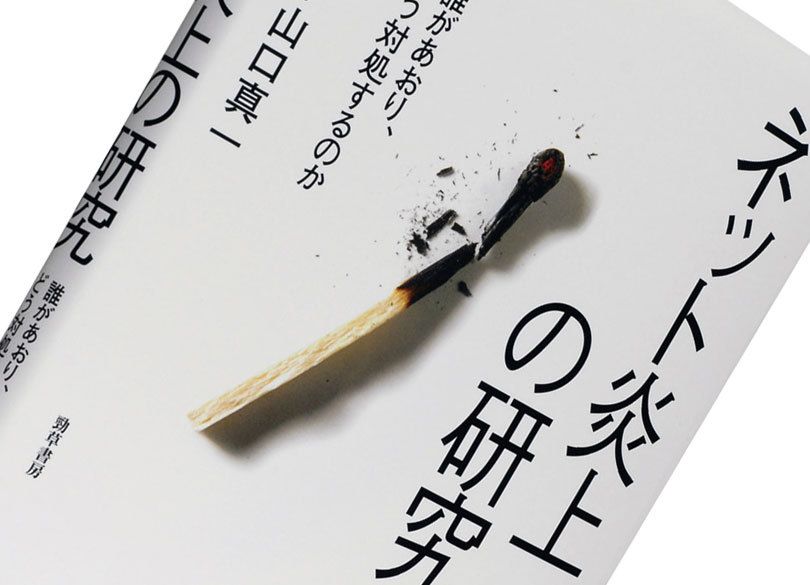 ネット炎上
の研究
誰があおり、
う対処するのか
山口真一
上の研究
誰があおり、
どう対処
勁草書房